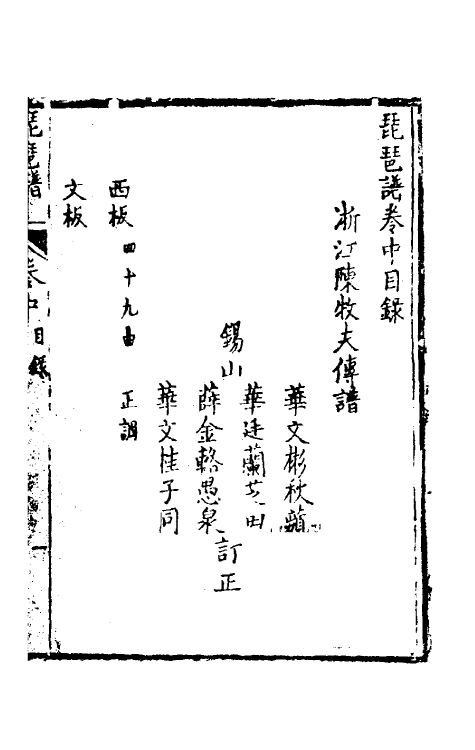 琵琶譜卷中目錄
浙江陳牧夫傳譜
華文彬秋蘋
華廷蘭芝田
錫山
薛金輅愚泉
華文桂子同
訂正
西板四十九曲 正調
文板
琵琶譜 卷中目錄